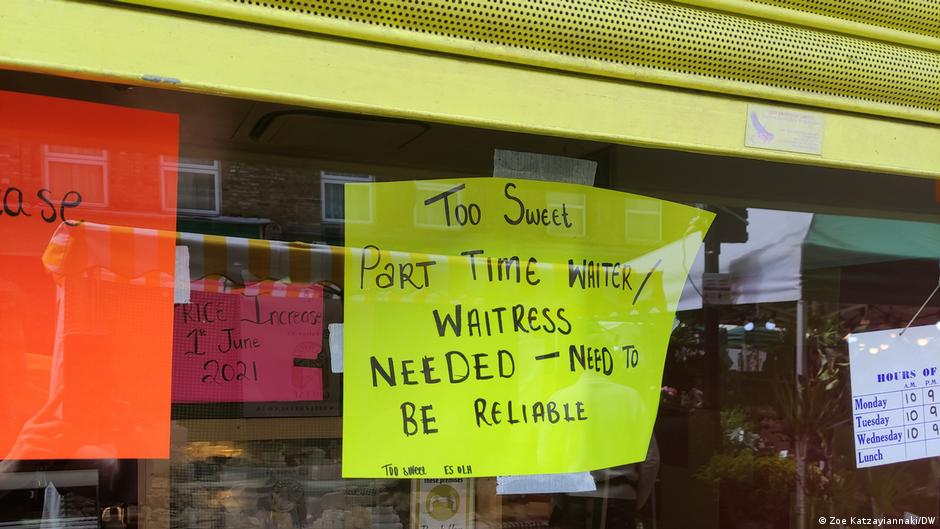 ease
PRICE Increase
1st June
2021
Too Sweet
PART TIME WAITER/
WAITRESS
NEEDED – NEED TO
BE RELIABLE
TOO SWEET ES OLH
these premises
HOURS OF
A.M. P.M.
Monday 10 9
Tuesday 10 9
Wednesday 10 9
Lunch
© Zoe Katzayiannaki/DW